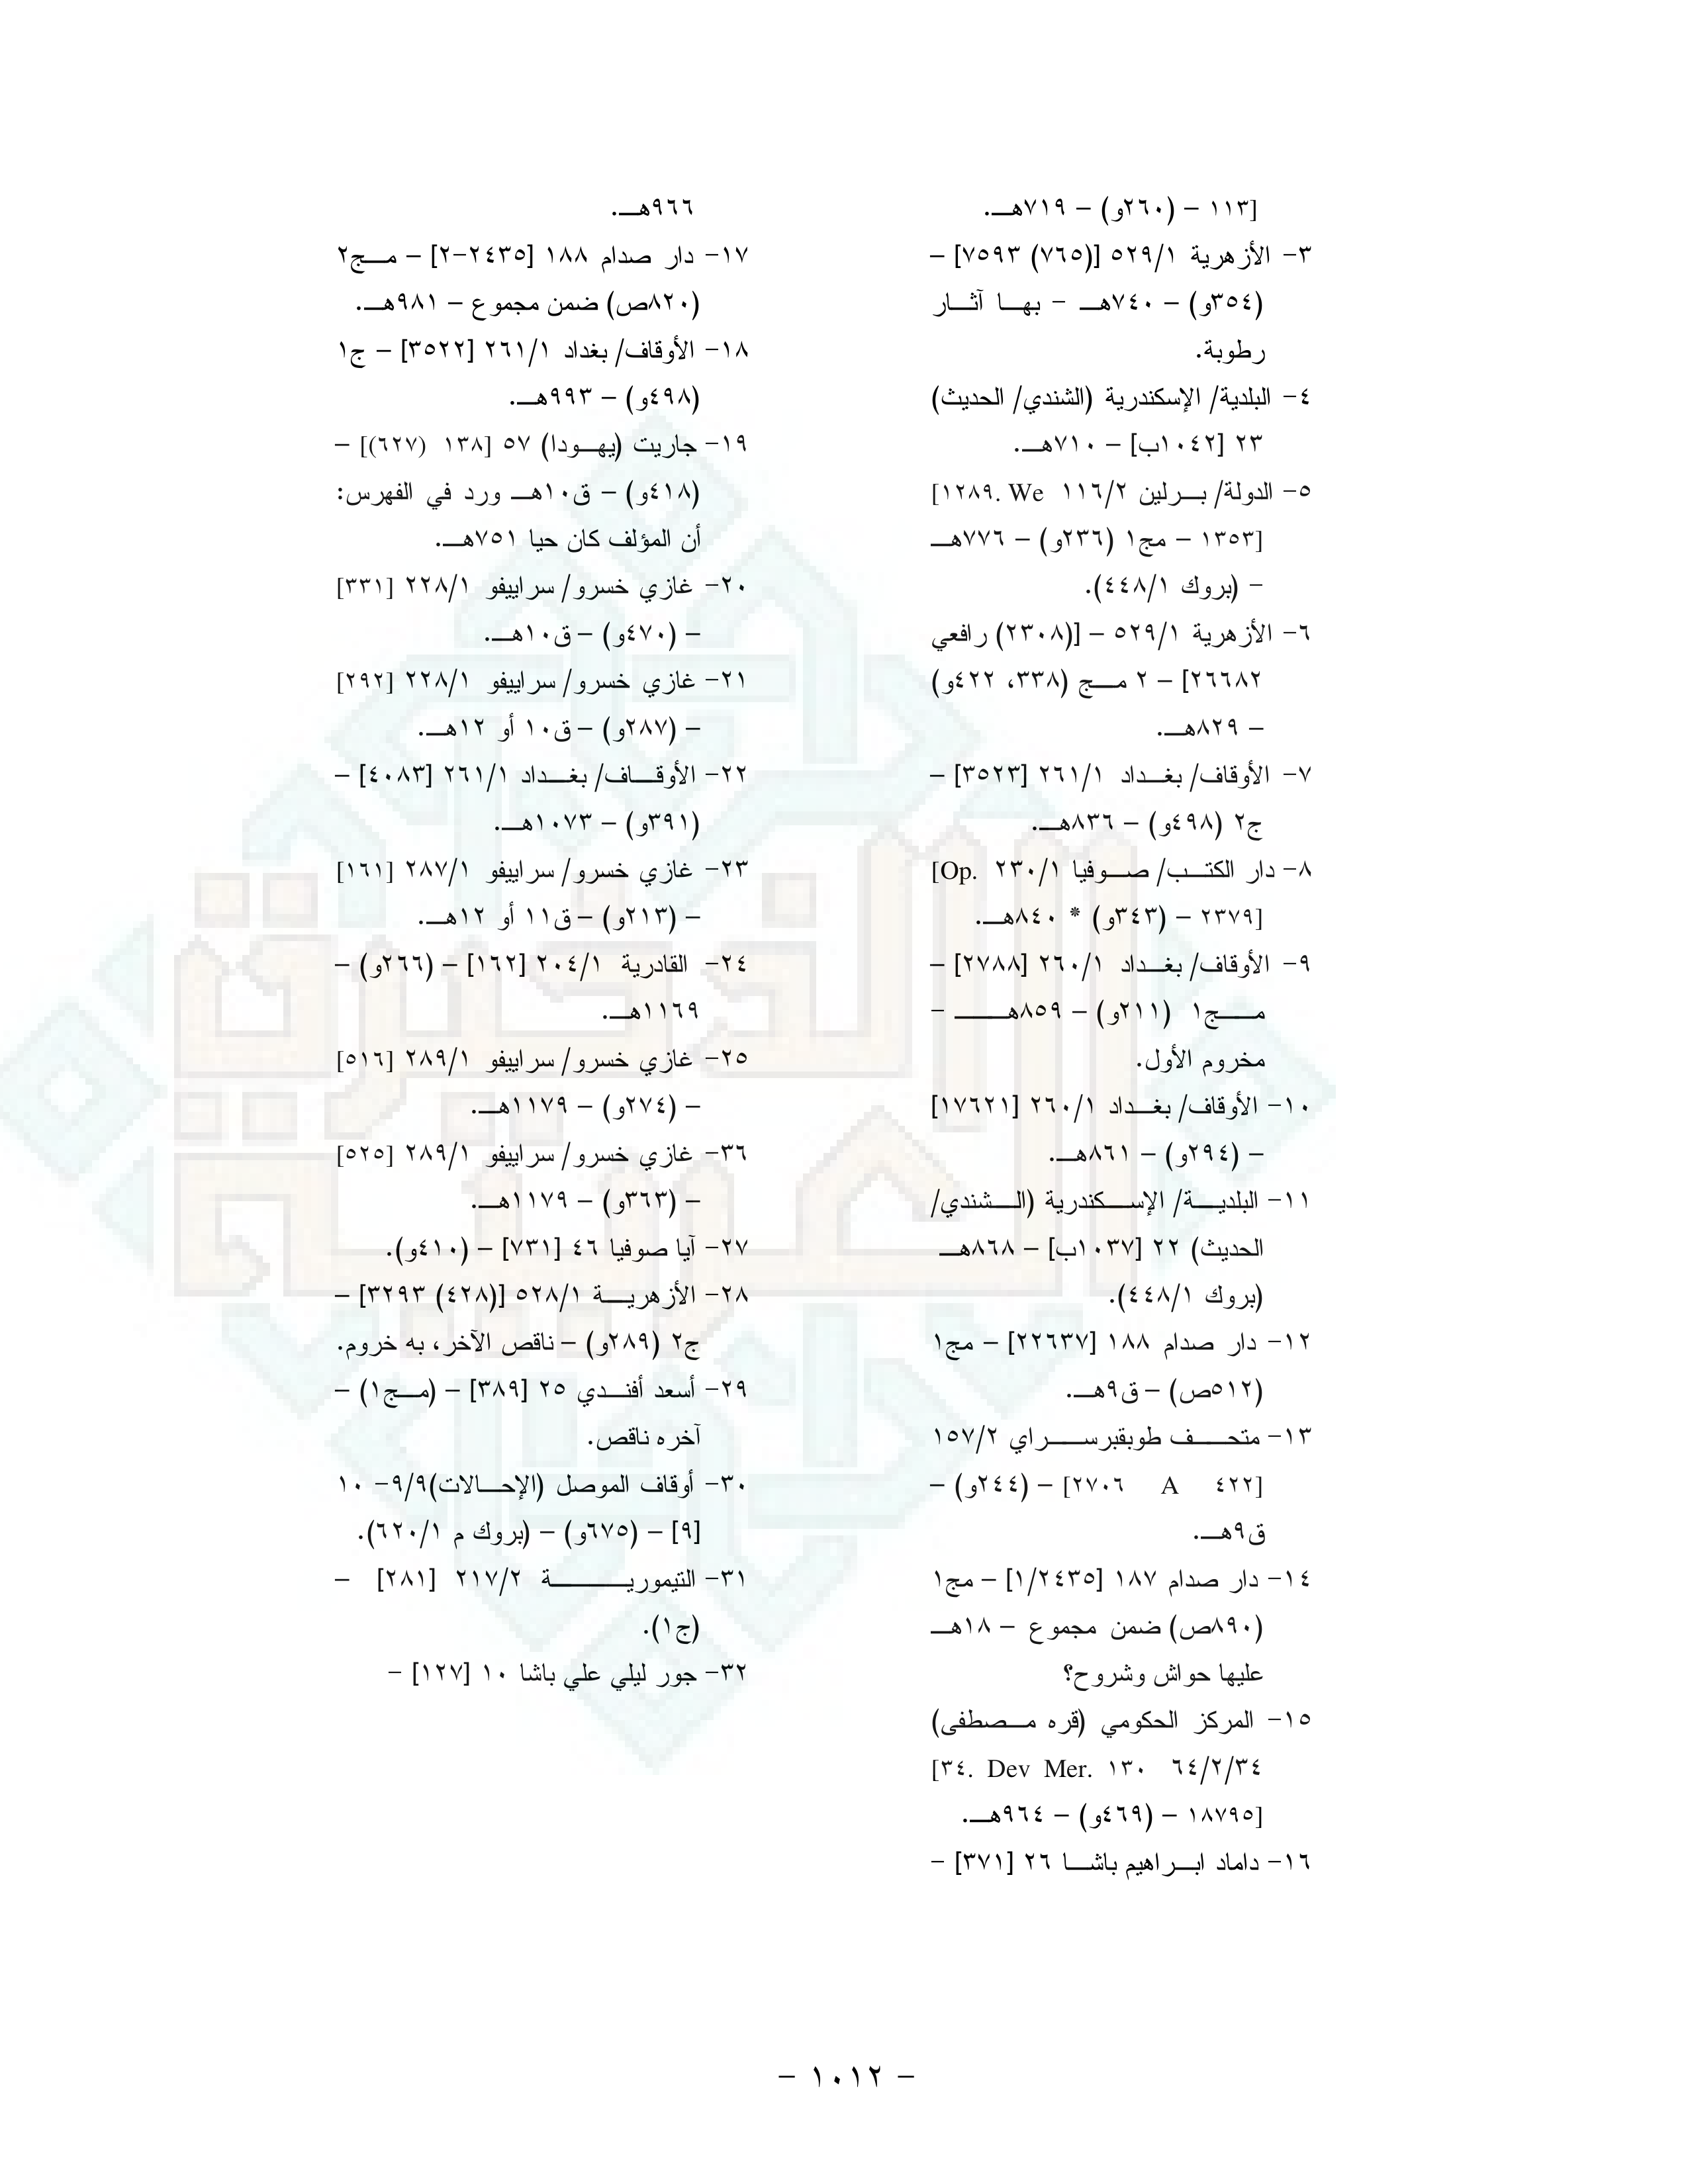 ١١٣] – (٢٦٠و) – ٧١٩هـ.
٣- الأزهرية ٥٢٩/١ [(٧٦٥) ٧٥٩٣] –
(٣٥٤و) – ٧٤٠هـ - بها آثار
رطوبة.
٤- البلدية/ الإسكندرية (الشندي/ الحديث)
٢٣ [١٠٤٢ب] – ٧١٠هـ.
٥- الدولة/ برلين ١١٦/٢ We .١٢٨٩]
١٣٥٣] – مج١ (٢٣٦و) – ٧٧٦هـ
– (بروك ٤٤٨/١).
٦- الأزهرية ٥٢٩/١ – [(٢٣٠٨) رافعي
٢٦٦٨٢] – ٢ مج (٣٣٨، ٤٢٢و)
– ٨٢٩هـ.
٧- الأوقاف/ بغداد ٢٦١/١ [٣٥٢٣] –
ج٢ (٤٩٨و) – ٨٣٦هـ.
٨- دار الكتب/ صوفيا ٢٣٠/١ .Op]
٢٣٧٩] – (٣٤٣و) * ٨٤٠هـ.
٩- الأوقاف/ بغداد ٢٦٠/١ [٢٧٨٨] –
مج١ (٢١١و) – ٨٥٩هـ -
مخروم الأول.
١٠- الأوقاف/ بغداد ٢٦٠/١ [١٧٦٢١]
– (٢٩٤و) – ٨٦١هـ.
١١- البلدية/ الإسكندرية (الشندي/
الحديث) ٢٢ [١٠٣٧ب] – ٨٦٨هـ
(بروك ٤٤٨/١).
١٢- دار صدام ١٨٨ [٢٢٦٣٧] – مج١
(٥١٢ص) – ق٩هـ.
١٣- متحف طوبقبرسراي ١٥٧/٢
[٤٢٢ A ٢٧٠٦] – (٢٤٤و) –
ق٩هـ.
١٤- دار صدام ١٨٧ [١/٢٤٣٥] – مج١
(٨٩٠ص) ضمن مجموع – ١٨هـ
عليها حواش وشروح؟
١٥- المركز الحكومي (قره مصطفى)
٦٤/٢/٣٤ ١٣٠ .Dev Mer .٣٤]
١٨٧٩٥] – (٤٦٩و) – ٩٦٤هـ.
١٦- داماد ابراهيم باشا ٢٦ [٣٧١] –
٩٦٦هـ.
١٧- دار صدام ١٨٨ [٢٤٣٥-٢] – مج٢
(٨٢٠ص) ضمن مجموع – ٩٨١هـ.
١٨- الأوقاف/ بغداد ٢٦١/١ [٣٥٢٢] – ج١
(٤٩٨و) – ٩٩٣هـ.
١٩- جاريت (يهودا) ٥٧ [١٣٨ (٦٢٧)] –
(٤١٨و) – ق١٠هـ ورد في الفهرس:
أن المؤلف كان حيا ٧٥١هـ.
٢٠- غازي خسرو/ سراييفو ٢٢٨/١ [٣٣١]
– (٤٧٠و) – ق١٠هـ.
٢١- غازي خسرو/ سراييفو ٢٢٨/١ [٢٩٢]
– (٢٨٧و) – ق١٠ أو ١٢هـ.
٢٢- الأوقاف/ بغداد ٢٦١/١ [٤٠٨٣] –
(٣٩١و) – ١٠٧٣هـ.
٢٣- غازي خسرو/ سراييفو ٢٨٧/١ [١٦١]
– (٢١٣و) – ق١١ أو ١٢هـ.
٢٤- القادرية ٢٠٤/١ [١٦٢] – (٢٦٦و) –
١١٦٩هـ.
٢٥- غازي خسرو/ سراييفو ٢٨٩/١ [٥١٦]
– (٢٧٤و) – ١١٧٩هـ.
٣٦- غازي خسرو/ سراييفو ٢٨٩/١ [٥٢٥]
– (٣٦٣و) – ١١٧٩هـ.
٢٧- آيا صوفيا ٤٦ [٧٣١] – (٤١٠و).
٢٨- الأزهرية ٥٢٨/١ [(٤٢٨) ٣٢٩٣] –
ج٢ (٢٨٩و) – ناقص الآخر، به خروم.
٢٩- أسعد أفندي ٢٥ [٣٨٩] – (مج١) –
آخره ناقص.
٣٠- أوقاف الموصل (الإحالات)٩/٩- ١٠
[٩] – (٦٧٥و) – (بروك م ٦٢٠/١).
٣١- التيمورية ٢١٧/٢ [٢٨١] –
(ج١).
٣٢- جور ليلي علي باشا ١٠ [١٢٧] –
– ١٠١٢ –